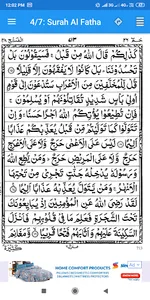 12:02 PM
4/7: Surah Al Fatha
حٰمٓ ٢٦ ٥١٣ الفتح ٤٨
كَذٰلِكُمْ قَالَ اللّٰهُ مِنْ قَبْلُ ۚ فَسَيَقُوْلُوْنَ بَلْ
تَحْسُدُوْنَنَا ؕ بَلْ كَانُوْا لَا يَفْقَهُوْنَ اِلَّا قَلِيْلًا
قُلْ لِّلْمُخَلَّفِيْنَ مِنَ الْاَعْرَابِ سَتُدْعَوْنَ اِلٰى قَوْمٍ
اُولِيْ بَاْسٍ شَدِيْدٍ تُقَاتِلُوْنَهُمْ اَوْ يُسْلِمُوْنَ ۚ
فَاِنْ تُطِيْعُوْا يُؤْتِكُمُ اللّٰهُ اَجْرًا حَسَنًا ۚ وَاِنْ
تَتَوَلَّوْا كَمَا تَوَلَّيْتُمْ مِّنْ قَبْلُ يُعَذِّبْكُمْ عَذَابًا اَلِيْمًا
لَيْسَ عَلَى الْاَعْمٰى حَرَجٌ وَّلَا عَلَى الْاَعْرَجِ
حَرَجٌ وَّلَا عَلَى الْمَرِيْضِ حَرَجٌ ؕ وَمَنْ يُّطِعِ اللّٰهَ
وَرَسُوْلَهٗ يُدْخِلْهُ جَنّٰتٍ تَجْرِيْ مِنْ تَحْتِهَا
الْاَنْهٰرُ ۚ وَمَنْ يَّتَوَلَّ يُعَذِّبْهُ عَذَابًا اَلِيْمًا
لَقَدْ رَضِيَ اللّٰهُ عَنِ الْمُؤْمِنِيْنَ اِذْ يُبَايِعُوْنَكَ
تَحْتَ الشَّجَرَةِ فَعَلِمَ مَا فِيْ قُلُوْبِهِمْ فَاَنْزَلَ
السَّكِيْنَةَ عَلَيْهِمْ وَاَثَابَهُمْ فَتْحًا قَرِيْبًا وَّمَغَانِمَ
HOME COMFORT PRODUCTS